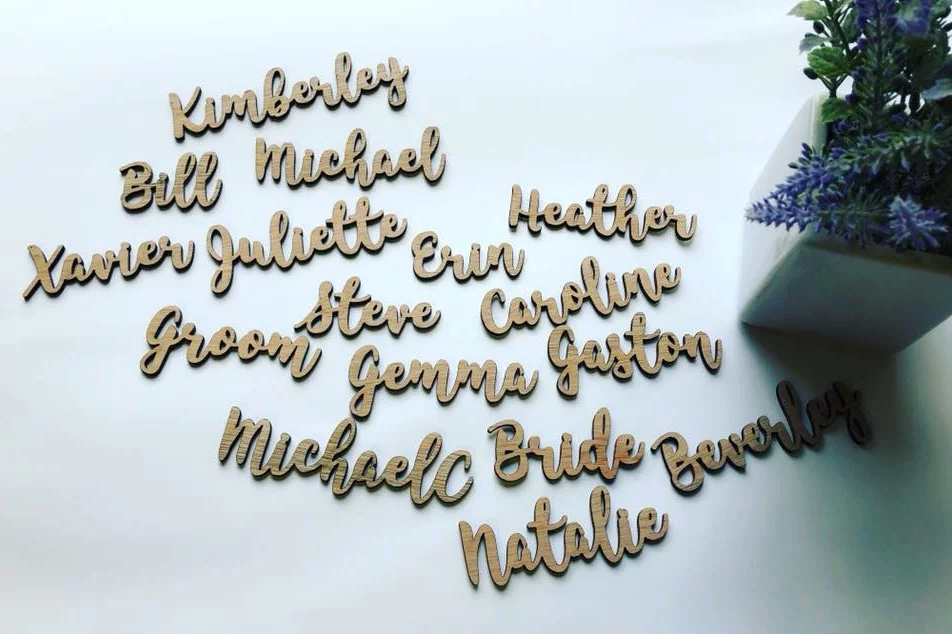 Kimberley
Bill Michael
Heather
Xavier Juliette Erin
Steve Caroline
Groom Gemma Gaston
MichaelC Bride Beverley
Natalie